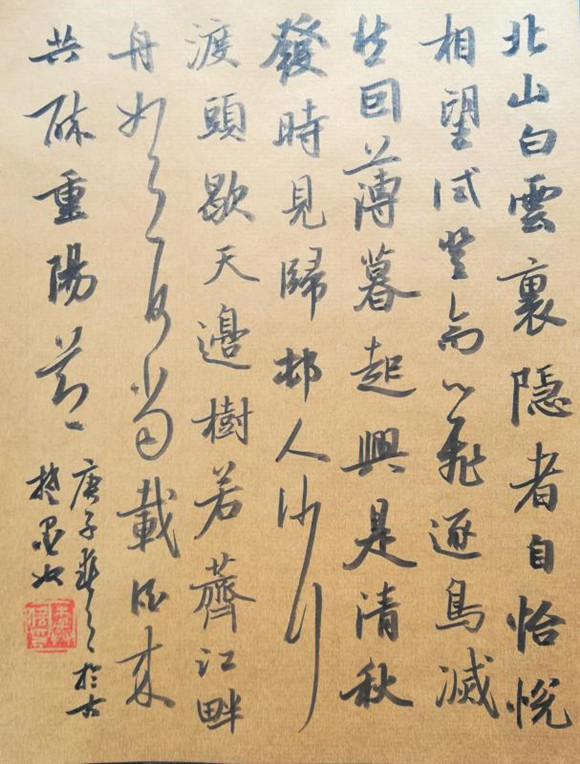 北山白雲裏隱者自怡悅
相望試登高心飛逐鳥滅
愁因薄暮起興是清秋
發時見歸邨人沙行
渡頭歇天邊樹若薺江畔
舟如月何當載酒來
共醉重陽節
庚子於古
楚